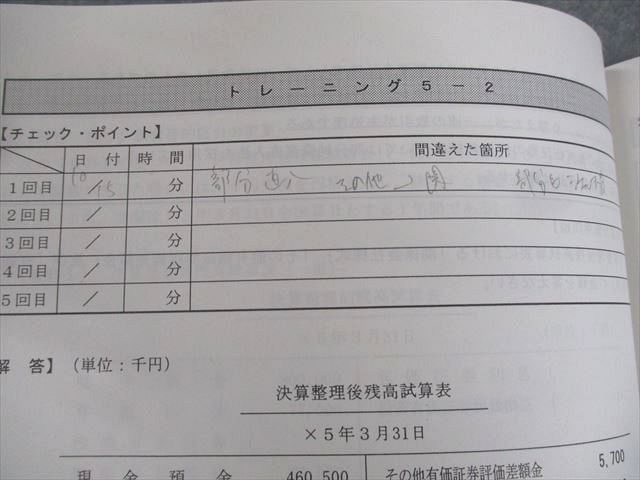 トレーニング5-2
【チェック・ポイント】
日 付 時 間 間違えた箇所
1回目 10/15 分 部分 その他
2回目 / 分
3回目 / 分
4回目 / 分
5回目 / 分
解 答】 (単位:千円)
決算整理後残高試算表
×5年3月31日
現 金 預 金 460,500 その他有価証券評価差額金 5,700